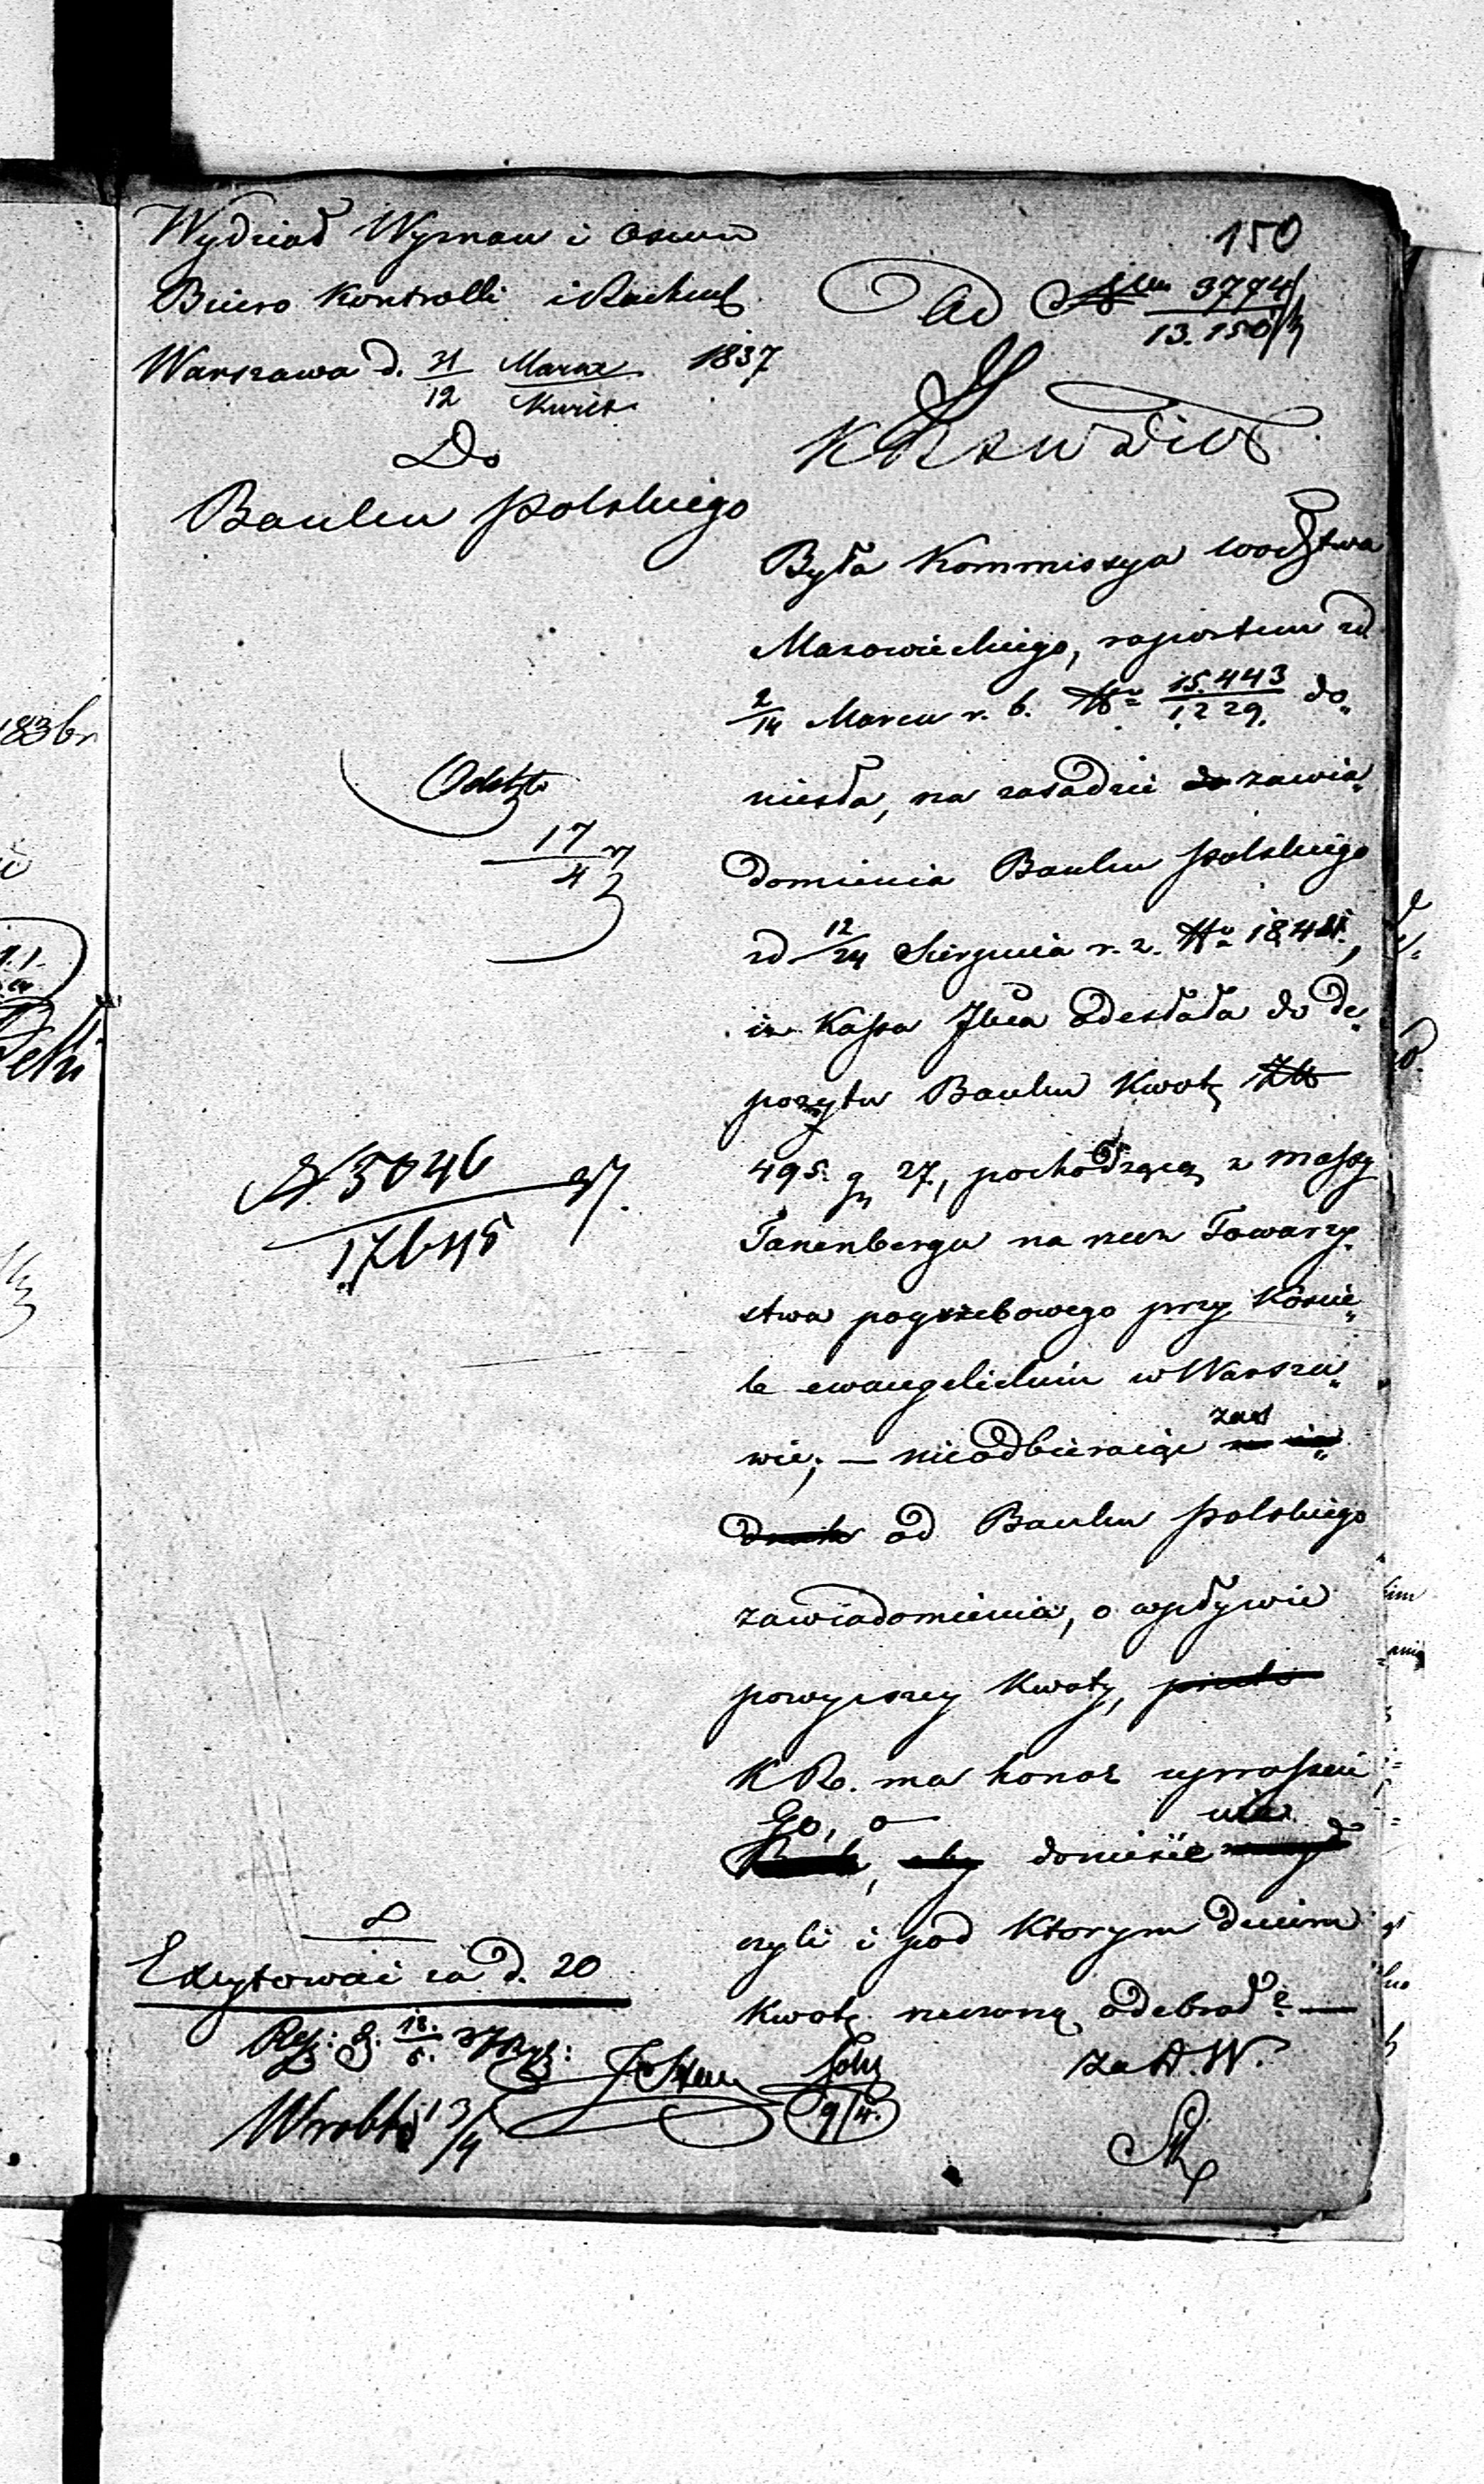 150
Wydział Wyznań i Oświe
Biuro Kontrolli i Rachub
Warszawa d. 31/12 Marca/Kwiet. 1837
Do
Banku Polskiego
Ad Num 3774/13.150
K R S W D i O P
Była Kommissya Wodztwa
Mazowieckiego, raportem od
2/14 Marca r. b. No 15.443/1229. do„
niosła, na zasadzie zawia„
domienia Banku Polskiego
od 12/24 Sierpnia r. z. No
iż Kassa Jlna odesłała do de„
pozytu Banku Kwotę Złp
495. gr 27, pochodzącą z massy
Tanenberga na rzecz Towarzy„
stwa pogrzebowego przy Kościе„
le ewangelickim w Warsza„
wie; — nieodbieraiąc zaś
od Banku Polskiego
zawiadomienia, o wpływie
powyższey Kwoty,
K R. ma honor uprassać
Go, o doniesienie
czyli i pod Ktorym dniem
Kwotę rzeczoną odebrał? —
Za D. W.
17/4
N 5046/17645 37.
Excytować za d. 20
9/4.
13/4